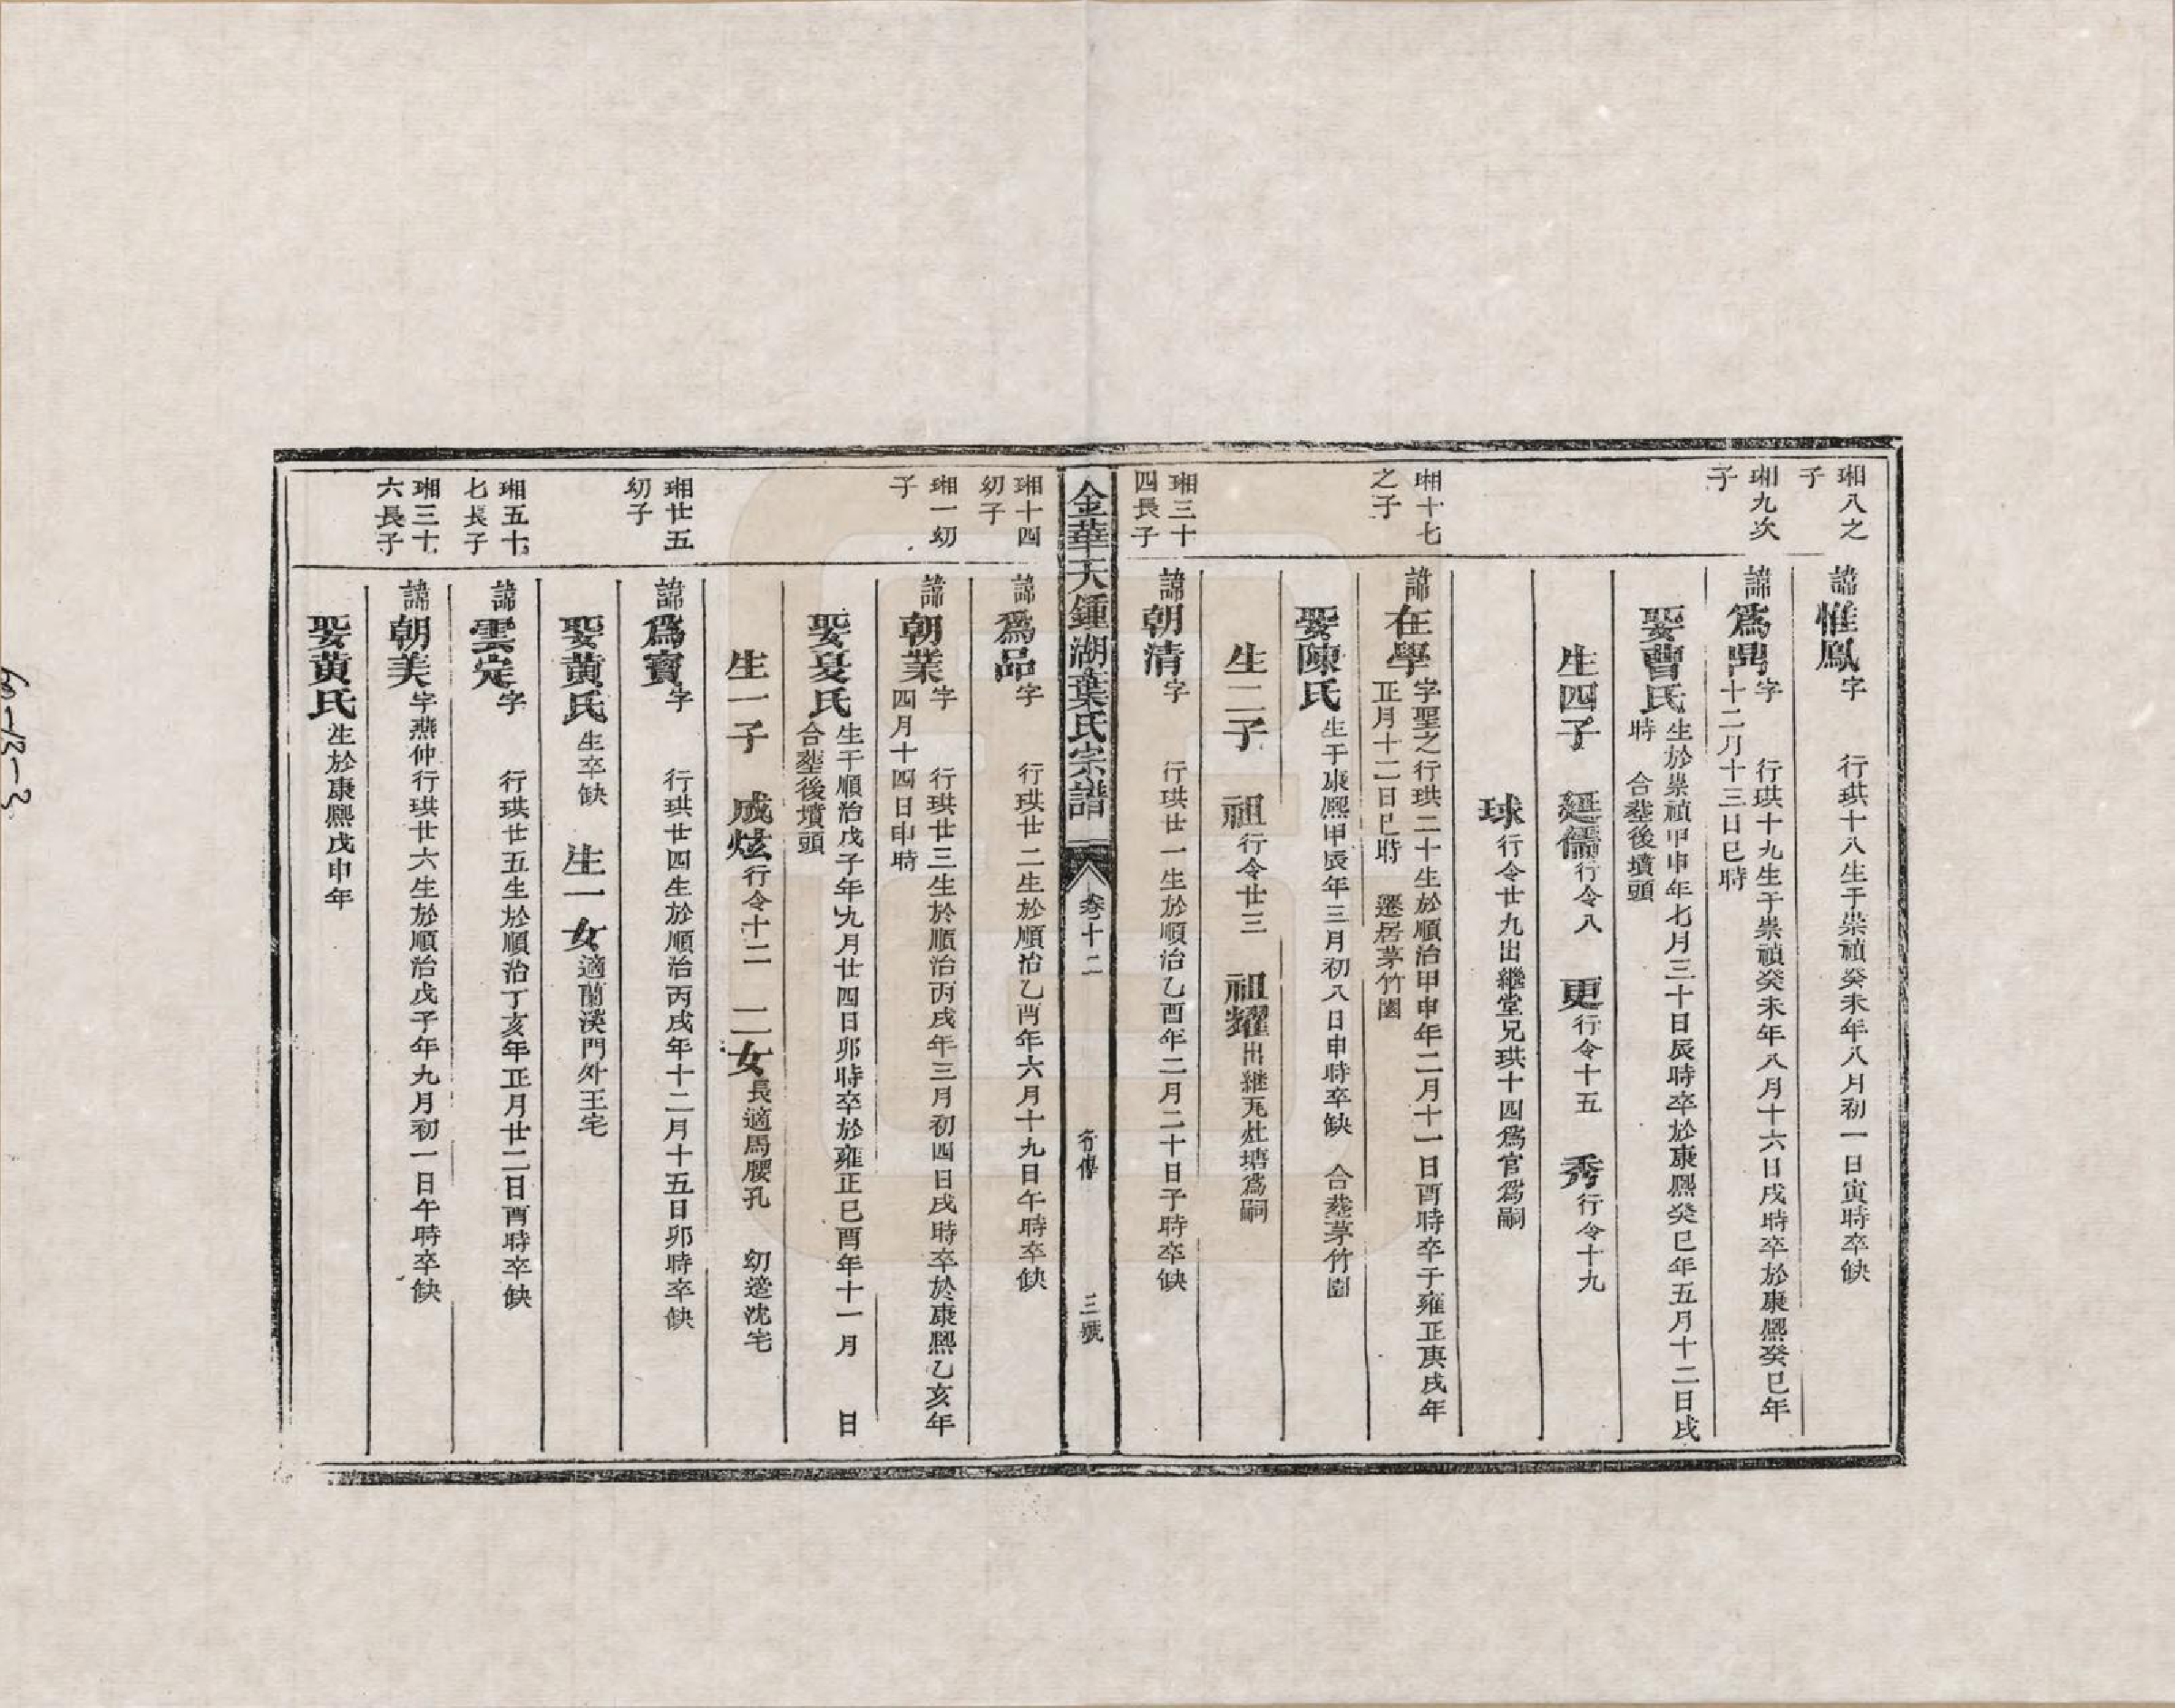 琱八之
子
諱惟鳳字　行珙十八生于崇禎癸未年八月初一日寅時卒缺
琱九次
子
諱為門字　行珙十九生于崇禎癸未年八月十六日戌時卒於康熙癸巳年
十二月十三日巳時
娶曹氏生於崇禎甲申年七月三十日辰時卒於康熙癸巳年五月十二日戌
時　合塟後墳頭
生四子　廷儒行令八　更行令十五　秀行令十九
球行令廿九出繼堂兄珙十四為官為嗣
琱十七
之子
諱在學字聖之行珙二十生於順治甲申年二月十一日酉時卒于雍正庚戌年
正月十二日巳時　遷居茅竹園
娶陳氏生于康熙甲辰年三月初八日申時卒缺　合塟茅竹園
生二子　祖行令廿三　祖耀出継瓦灶塘為嗣
琱三十
四長子
諱朝清字　行珙廿一生於順治乙酉年二月二十日子時卒缺
金華天鍾湖葉氏宗譜　卷十二　行傳　三號
琱十四
幼子
諱為品字　行珙廿二生於順治乙酉年六月十九日午時卒缺
琱一幼
子
諱朝業字　行珙廿三生於順治丙戌年三月初四日戌時卒於康熙乙亥年
四月十四日申時
娶夏氏生于順治戊子年九月廿四日卯時卒於雍正己酉年十一月　日
合塟後墳頭
生一子　成炫行令十二　二女長適馬腰孔　幼適沈宅
琱廿五
幼子
諱為寶字　行珙廿四生於順治丙戌年十二月十五日卯時卒缺
娶黄氏生卒缺　生一女適蘭溪門外王宅
琱五十
七長子
諱雲定字　行珙廿五生於順治丁亥年正月廿二日酉時卒缺
琱三十
六長子
諱朝美字燕仲行珙廿六生於順治戊子年九月初一日午時卒缺
娶黄氏生於康熙戊申年